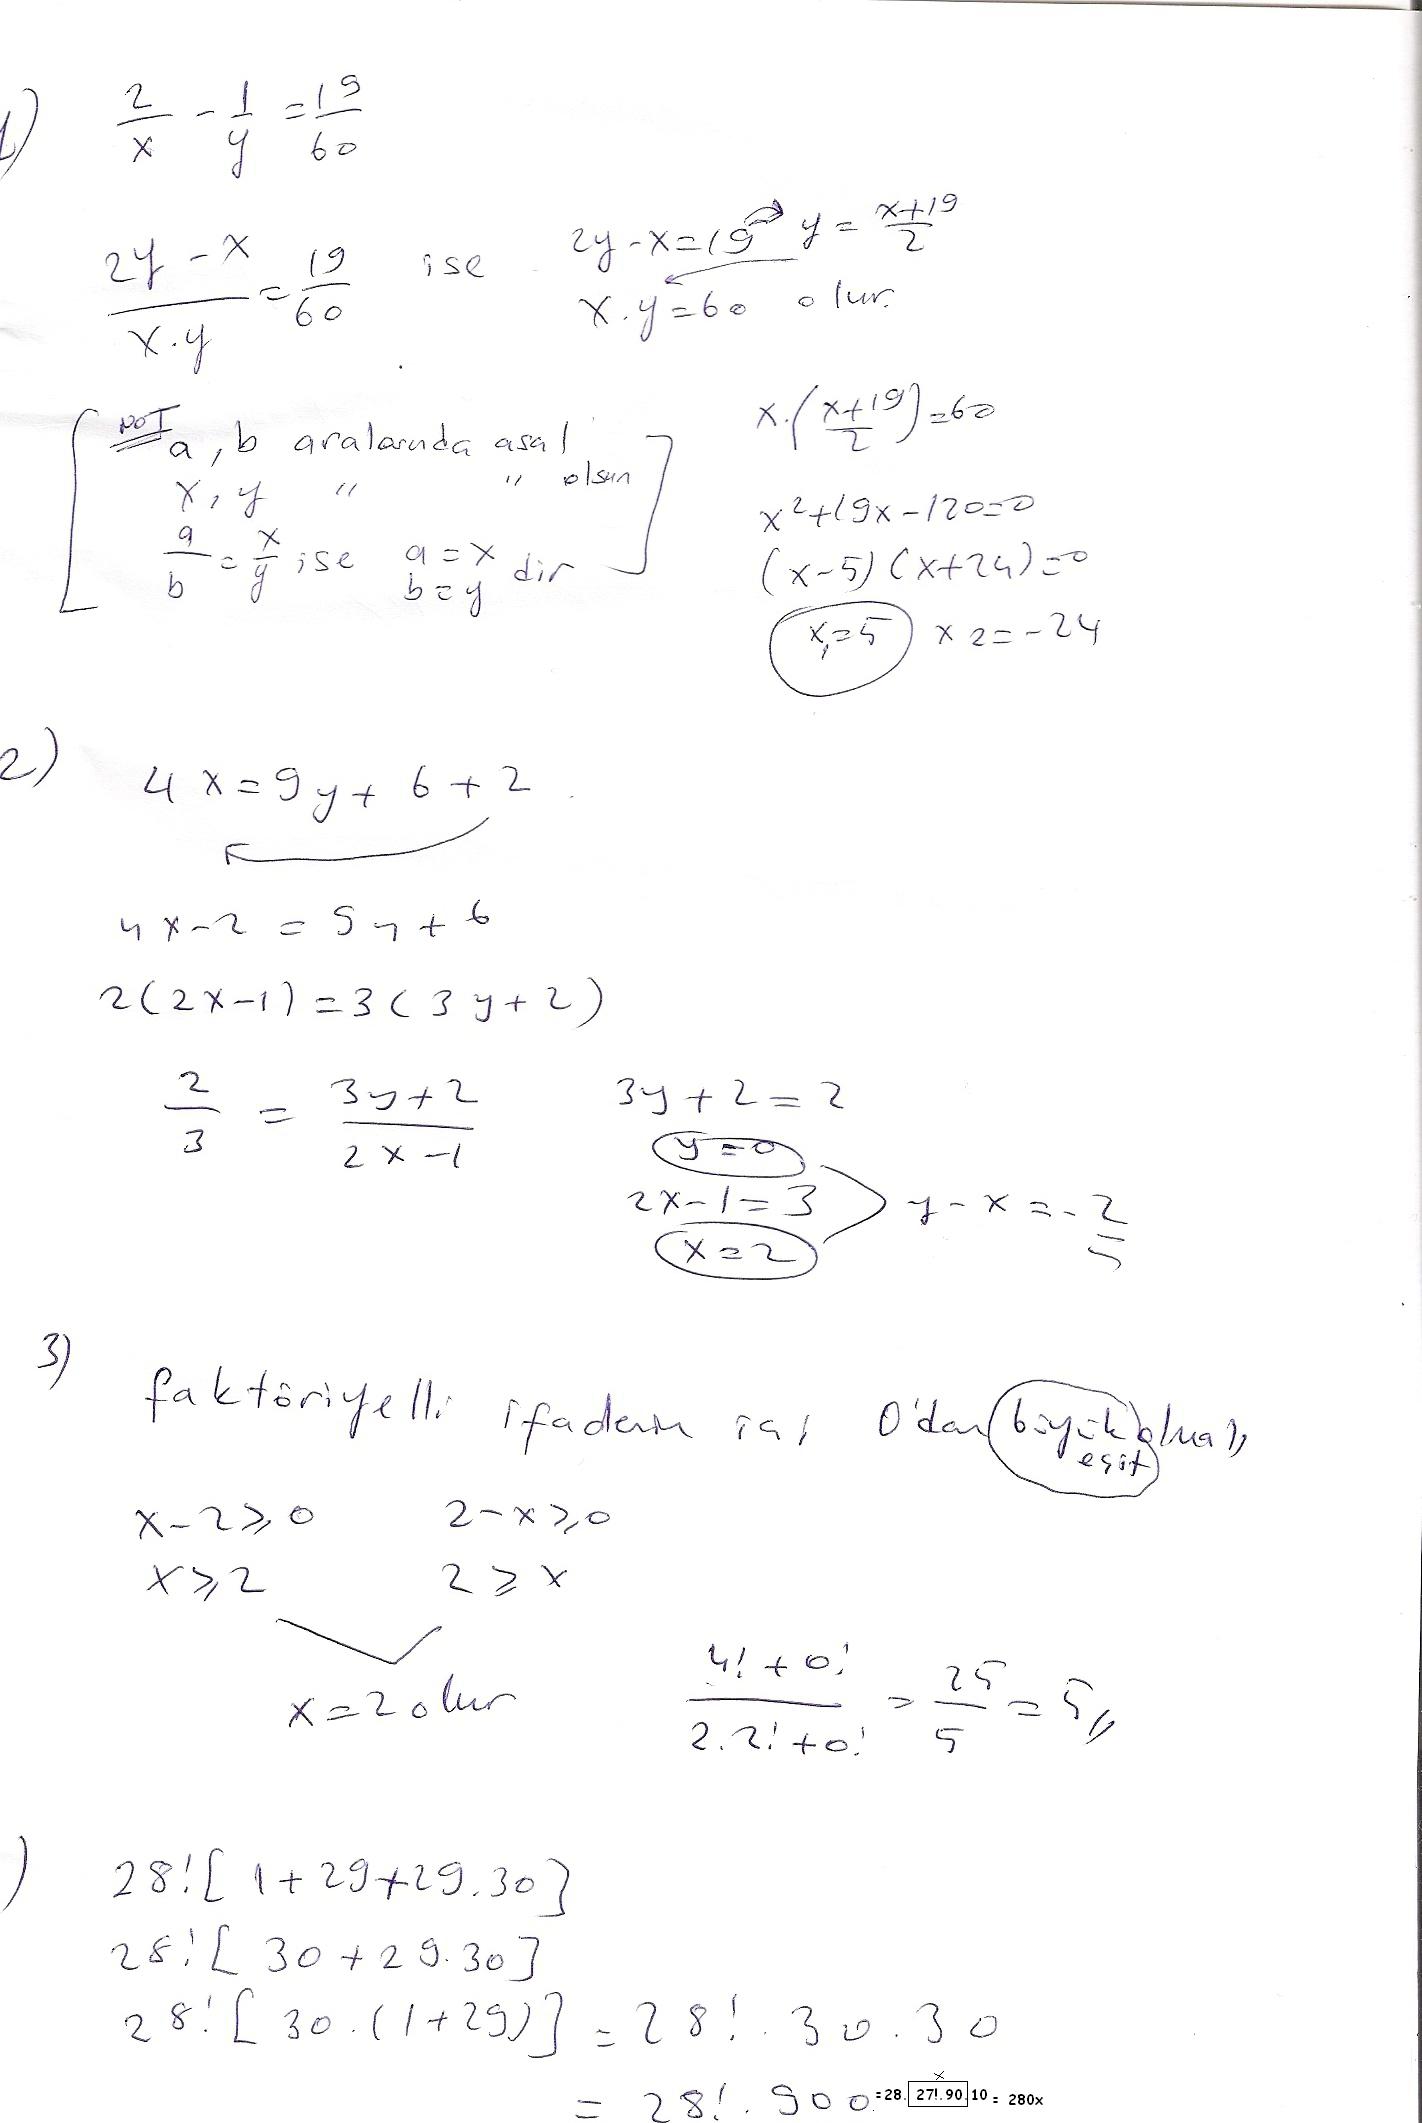 1) 2/x - 1/y = 19/60
(2y - x)/(x.y) = 19/60 ise 2y - x = 19 y = (x+19)/2
x.y = 60 olur.
NOT a, b aralarında asal
x, y " " olsun
a/b = x/y ise a = x b = y dir
x.((x+19)/2) = 60
x²+19x-120=0
(x-5)(x+24)=0
x₁=5 x2=-24
2) 4x = 9y + 6 + 2
4x-2 = 9y+6
2(2x-1) = 3(3y+2)
2/3 = (3y+2)/(2x-1)
3y+2 = 2
y = 0
2x-1 = 3
x = 2
y - x = -2
3) faktöriyelli ifadenin içi 0'dan büyük eşit olmalı
x-2 ≥ 0 2-x ≥ 0
x ≥ 2 2 ≥ x
x = 2 olur
(4! + 0!)/(2.2! + 0!) = 25/5 = 5
) 28![1+29+29.30]
28![30+29.30]
28![30.(1+29)] = 28!.30.30
= 28!.900 =28. 27!.90.10 = 280x
x